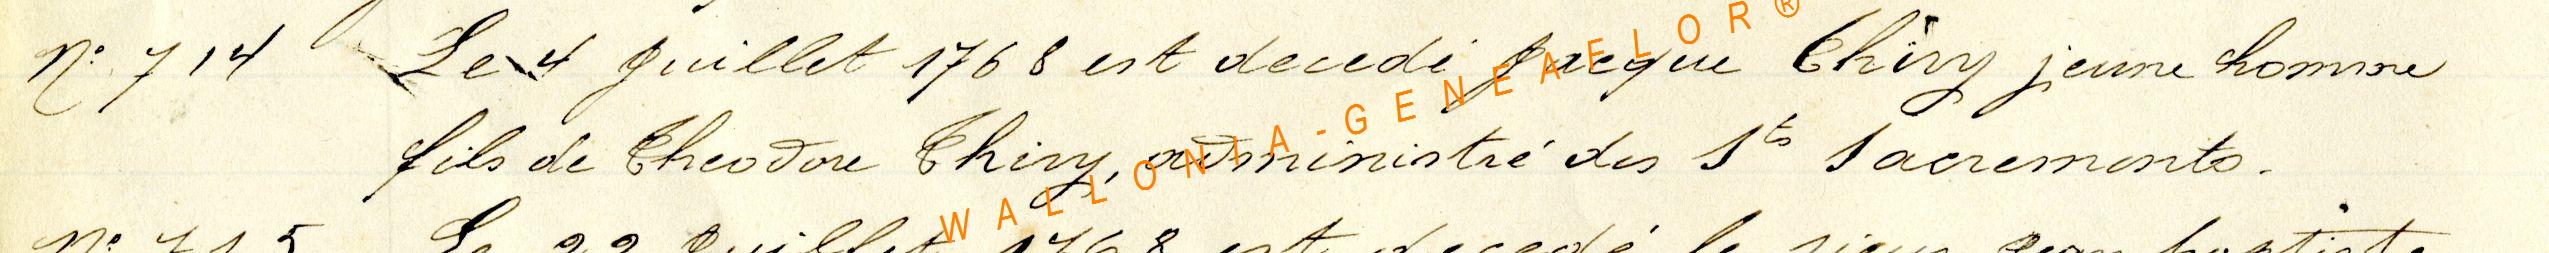 N° 714 Le 4 Juillet 1768 est decedé Jacque Thiry jeune homme
fils de Theodore Thiry, administré des Sts Sacrements.
N° 715 Le 22 Juillet 1768 est decedé le sieur Jean baptiste
WALLONIA-GENEAELOR®